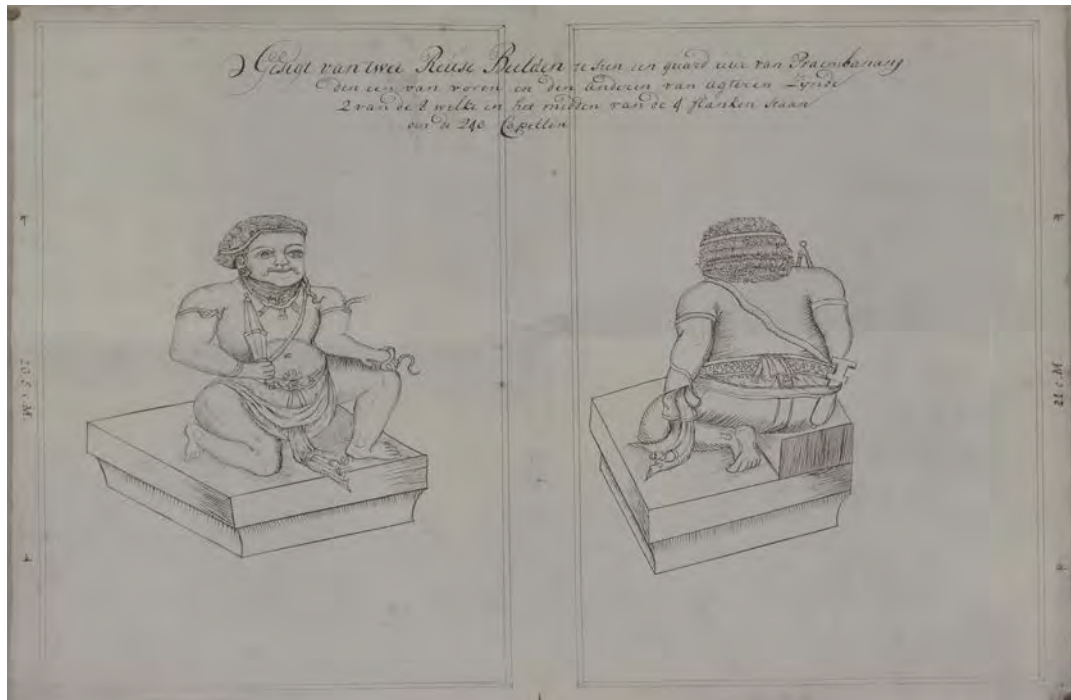 Gesigt van twee Reuse Beelden te sien een quard uur van Praembanang
den een van voren en den anderen van agteren Zynde
2 van de 8 welke in het midden van de 4 flanken staan
om de 240 Capellen
21 c.M